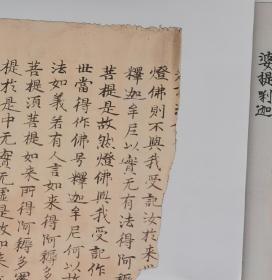 婆提 迦
燈佛則不與我受記汝於來
釋迦牟尼以實无有法得阿耨
菩提是故然燈佛與我受記作
世當得作佛号釋迦牟尼何以
法如義若有人言如來得阿耨多
菩提須菩提如來所得阿耨多
提於是中无實无虛是故如來